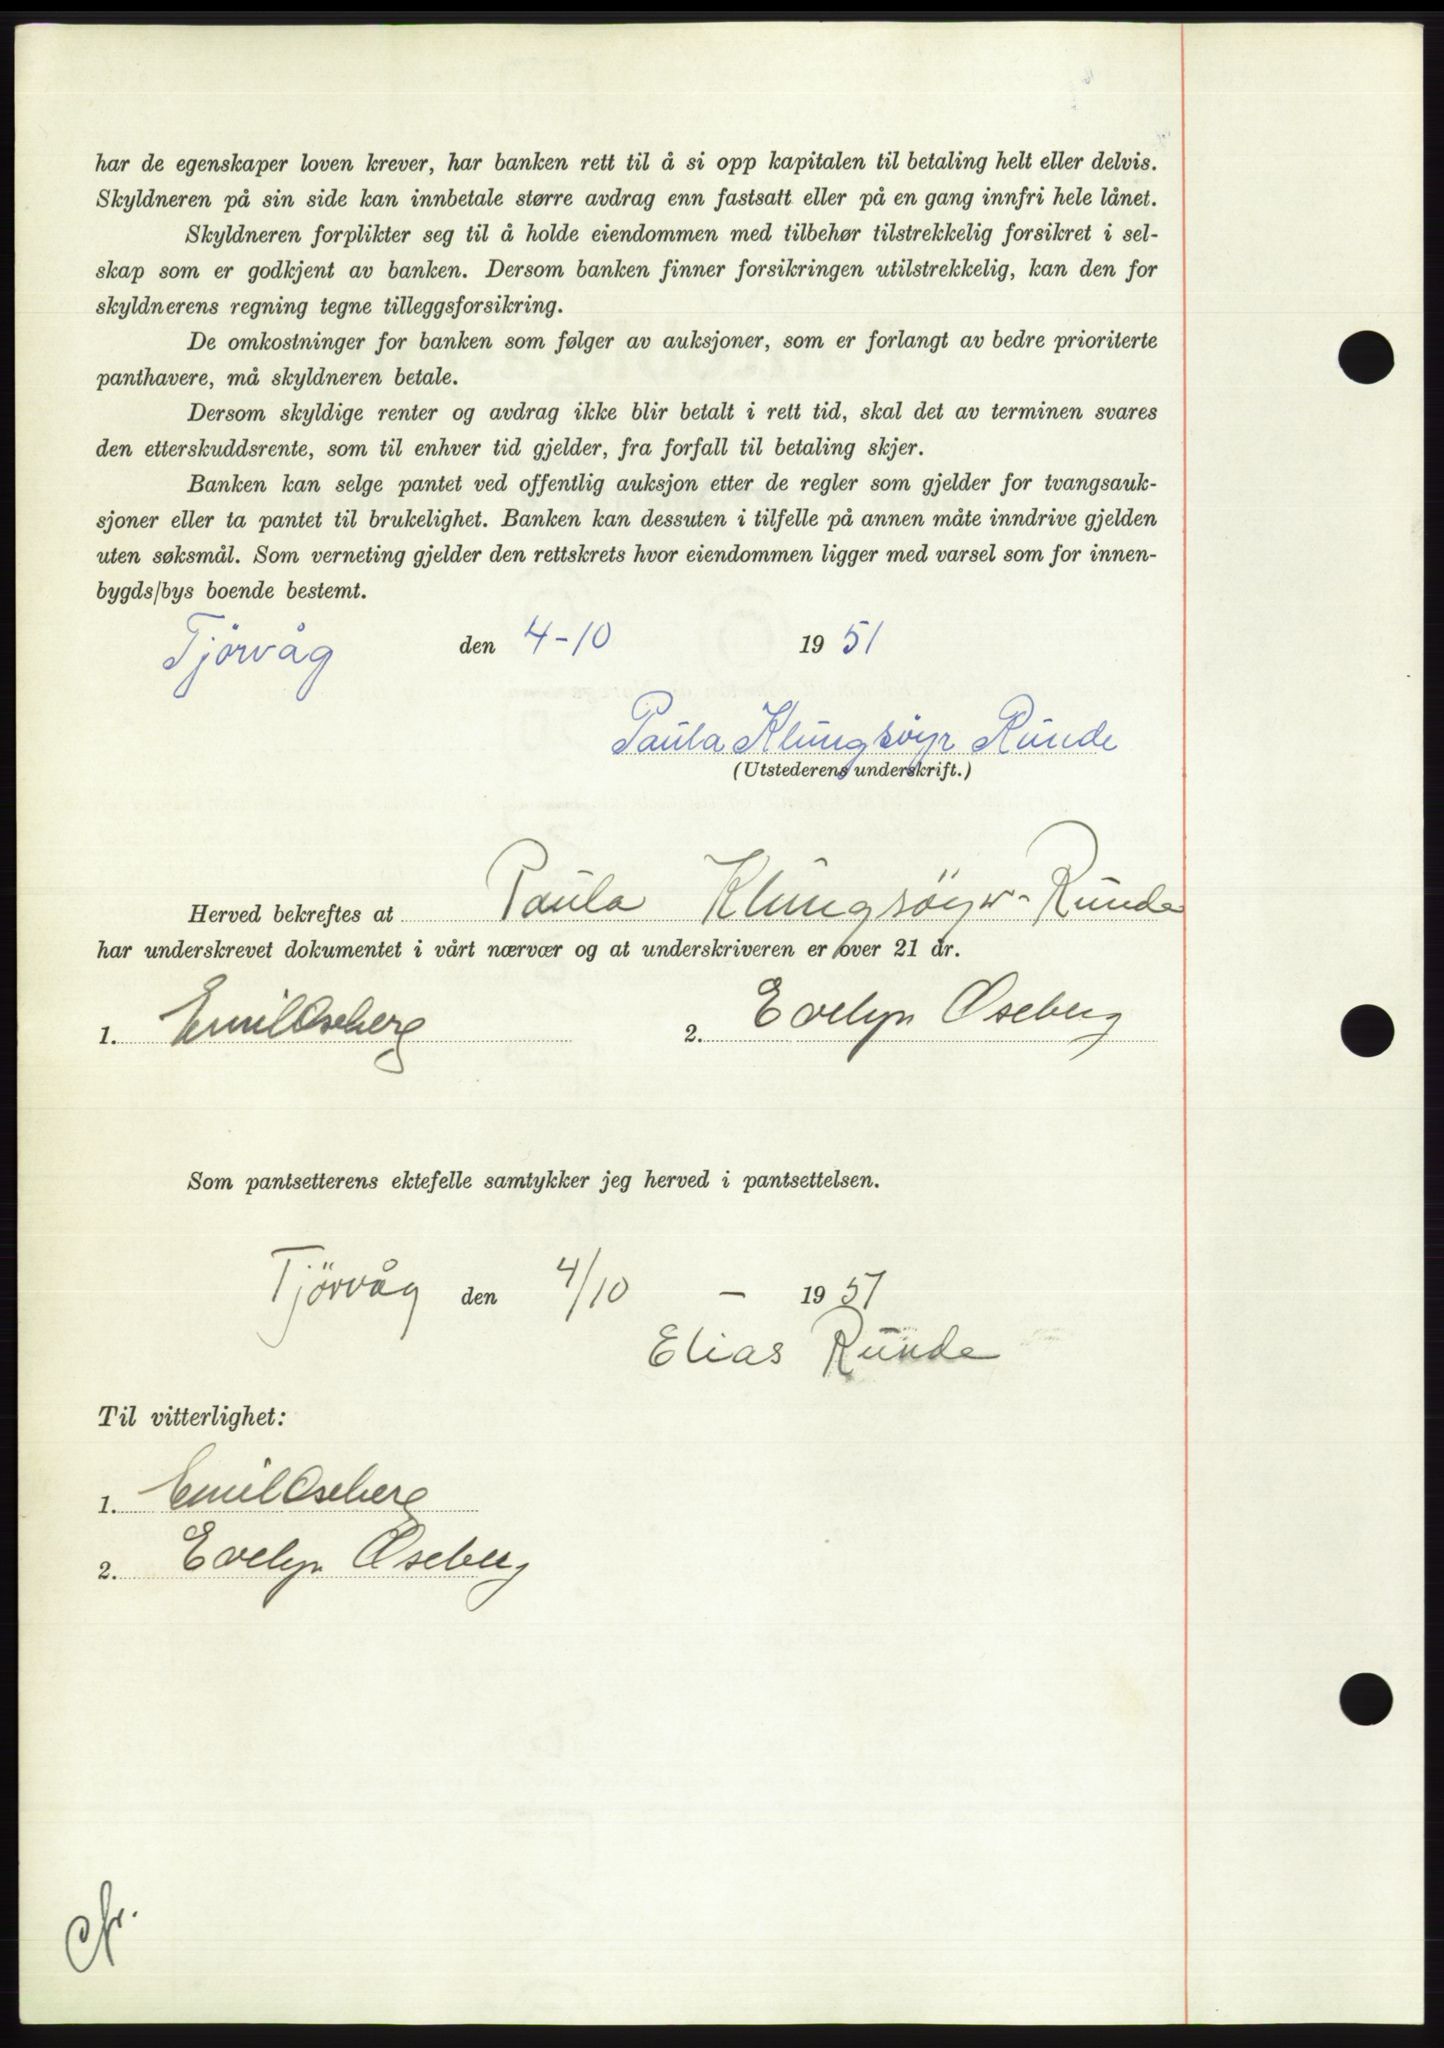 har de egenskaper loven krever, har banken rett til å si opp kapitalen til betaling helt eller delvis.
Skyldneren på sin side kan innbetale større avdrag enn fastsatt eller på en gang innfri hele lånet.
Skyldneren forplikter seg til å holde eiendommen med tilbehør tilstrekkelig forsikret i sel-
skap som er godkjent av banken. Dersom banken finner forsikringen utilstrekkelig, kan den for
skyldnerens regning tegne tilleggsforsikring.
De omkostninger for banken som følger av auksjoner, som er forlangt av bedre prioriterte
panthavere, må skyldneren betale.
Dersom skyldige renter og avdrag ikke blir betalt i rett tid, skal det av terminen svares
den etterskuddsrente, som til enhver tid gjelder, fra forfall til betaling skjer.
Banken kan selge pantet ved offentlig auksjon etter de regler som gjelder for tvangsauk-
sjoner eller ta pantet til brukelighet. Banken kan dessuten i tilfelle på annen måte inndrive gjelden
uten søksmål. Som verneting gjelder den rettskrets hvor eiendommen ligger med varsel som for innen-
bygds/bys boende bestemt.
Tjörvåg den 4-10 1951
Paula Klungsöyr Runde
(Utstederens underskrift.)
Herved bekreftes at Paula Klungsöyr-Runde
har underskrevet dokumentet i vårt nærvær og at underskriveren er over 21 år.
1. Emil Oseberg 2. Evelyn Oseberg
Som pantsetterens ektefelle samtykker jeg herved i pantsettelsen.
Tjörvåg den 4/10 - 1951
Elias Runde
Til vitterlighet:
1. Emil Oseberg
2. Evelyn Oseberg